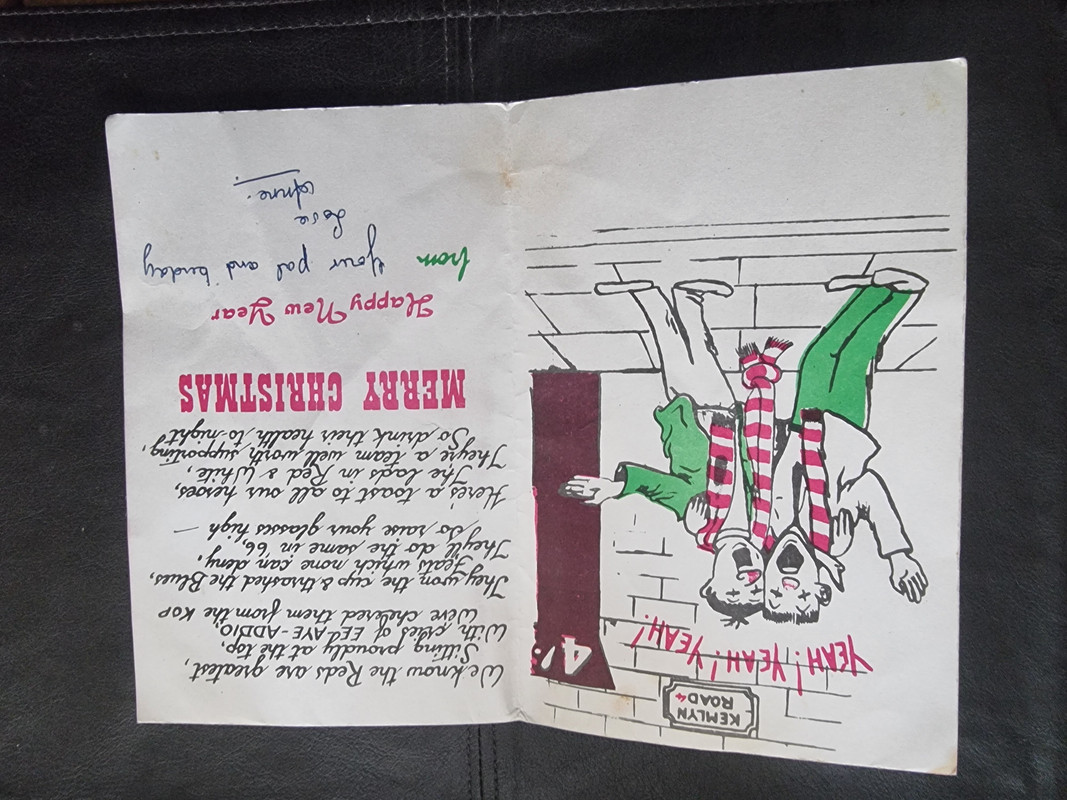 KEMLYN
ROAD 4
YEAH! YEAH! YEAH!
4/
We know the Reds are greatest,
Sitting proudly at the top,
With cries of EEI AYE-ADDIO
We've cheered them from the KOP
They won the cup & thrashed the Blues,
Feats which none can deny,
They'll do the same in '66,
So raise your glasses high —
Here's a toast to all our heroes,
The lads in Red & White,
They're a team well worth supporting,
So drink their health to-night
MERRY CHRISTMAS
Happy New Year
from your pal and
Love
Anne.